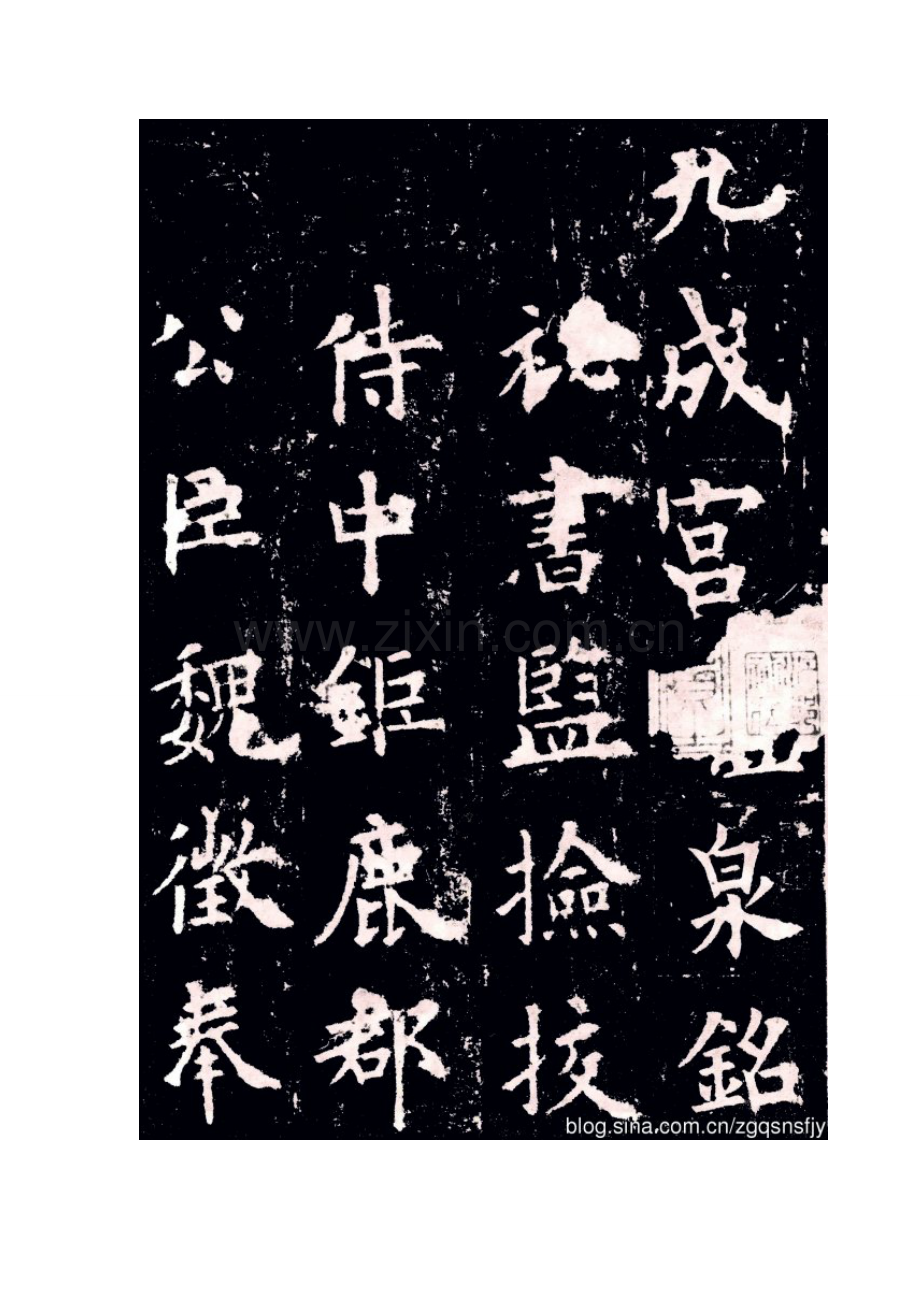 九成宮泉銘
祕書監撿挍
侍中鉅鹿郡
公臣魏徵奉
www.zixin.com.cn
blog.sina.com.cn/zgqsnsfjy